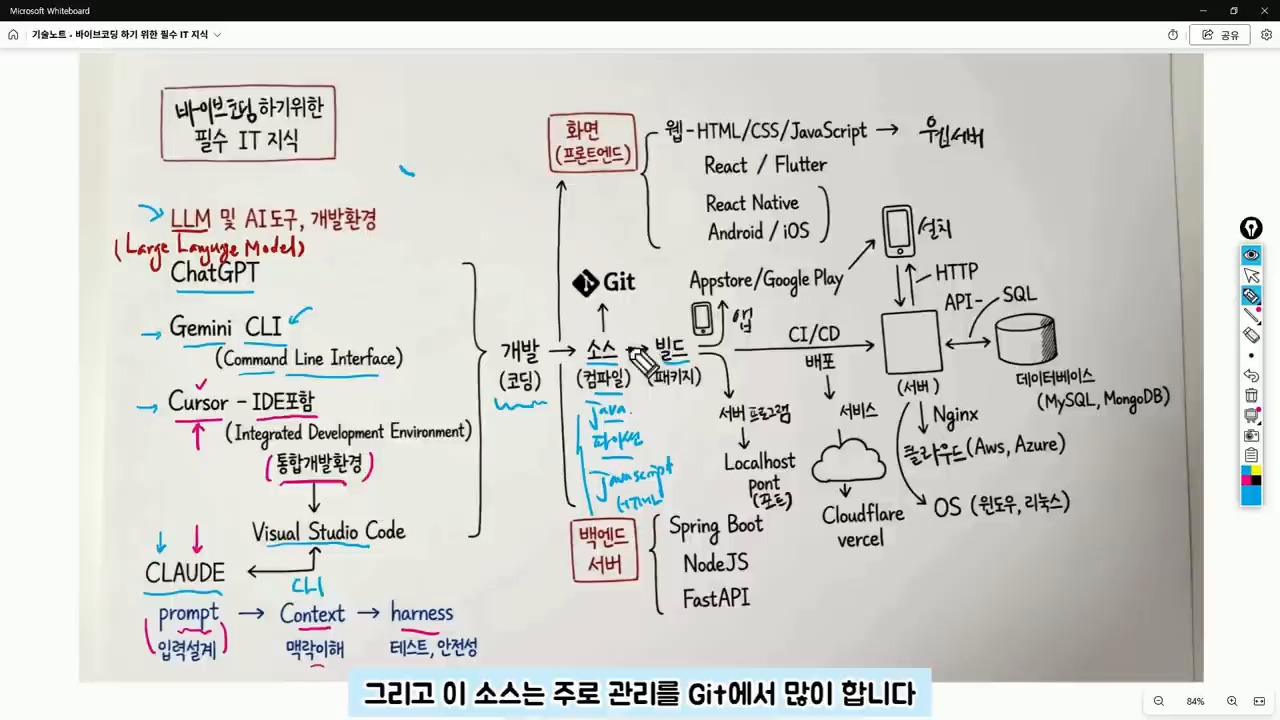 Microsoft Whiteboard
기술노트 - 바이브코딩 하기 위한 필수 IT 지식
공유
바이브코딩하기위한
필수 IT 지식
LLM 및 AI도구, 개발환경
(Large Languge Model)
ChatGPT
Gemini CLI
(Command Line Interface)
Cursor - IDE포함
(Integrated Development Environment)
(통합개발환경)
Visual Studio Code
CLAUDE
CLI
prompt → Context → harness
(입력설계)
맥락이해
테스트, 안전성
개발
(코딩)
Git
소스
(컴파일)
java.
파이썬
javascript
HTML
빌드
(패키지)
화면
(프론트엔드)
웹-HTML/CSS/JavaScript → 웹서버
React / Flutter
React Native
Android / iOS
Appstore/Google Play
앱
설치
HTTP
API-
SQL
CI/CD
배포
(서버)
데이터베이스
(MySQL, MongoDB)
서버 프로그램
Localhost
pont
(포트)
서비스
Cloudflare
vercel
Nginx
클라우드(Aws, Azure)
OS (윈도우, 리눅스)
백엔드
서버
Spring Boot
NodeJS
FastAPI
그리고 이 소스는 주로 관리를 Git에서 많이 합니다
84%